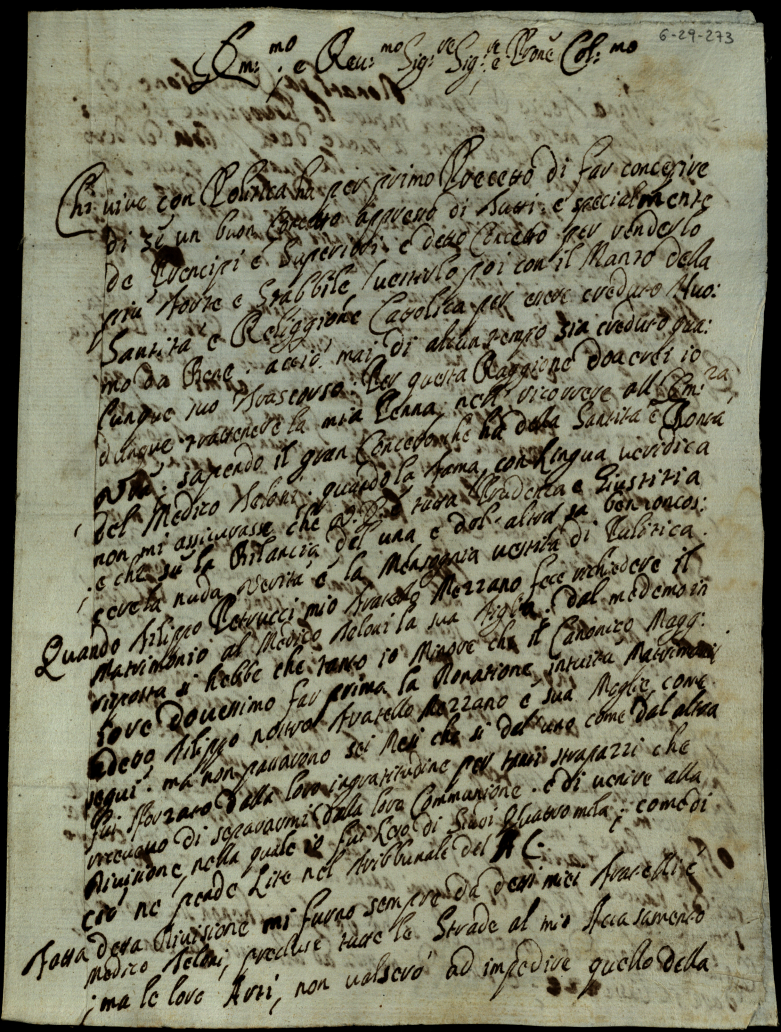 6-29-273
Em:mo e Reu:mo Sig:re Sig:re e Prone Col:mo
Chi vive con Politica ha per primo Precetto di far concepire
di sè un buon Concetto appresso di Tutti: e specialmente
de Prencipi e Superiori: e detto Concetto per renderlo
più forte e Stabbile, vestirlo poi con il Manto della
Santità e Religgione Catolica per esere creduto Huo:
mo da Bene: acciò mai di alcun tempo sia creduto qua:
lunque suo trascorso: Per questa Raggione dovrei io
dunque trattenere la mia Penna, nel ricorrere all Em:za
Vra: sapendo il gran Concetto che ha della Santità e Bontà
del Medico Teloni: quando la fama con lingua veridica
non mi assicurasse che è tutta Prudenza e Giustitia
e che sù la Bilancia del una e dol altra sa ben conos:
cere la nuda Verità e la Mensognia vestita di Pulitica.
Quando Filippo Petrucci mio fratello Mezzano fece richiedere il
Matrimonio al Medico Teloni la sua Figlia: dal medemo in
risposta si hebbe che tanto io Minore che il Canonico Magg:
iore dovessimo far prima la Donatione intuitù Matrimonij
a detto Filippo nostro fratello Mezzano e sua Moglie come
seguì: ma non passarono sei Mesi che si dal uno come dal altra
fui sforzato dalla loro ingratitudine per tanti strapazzi che
ricevevo di separarmi dalla loro Communione: e di venire alla
Divisione, nella quale io fui Leso di Scudi Quatromila; come di
ciò ne pende Lite nel Tribbunale del A C:
Fatta detta Divisione mi furno sempre da detti miei fratelli e
Medico Teloni, precluse tutte le Strade al mio Accasamento
; ma le loro Arti, non valsero ad impedire quello della